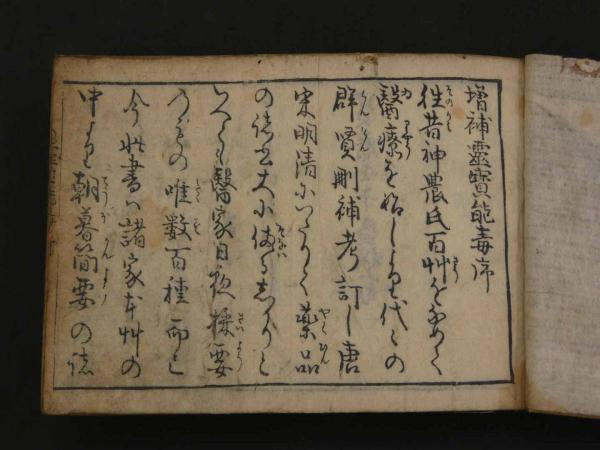 増補靈寳能毒序
往昔神農氏百艸をなめて
醫療を始しより代々の
群賢刪補考訂し唐
宋明清にいたりて薬品
の諸書大小備るしかりと
いへども醫家日夜採要
のもの唯数百種而已
今此書ハ諸家本艸の
中より朝暮簡要の